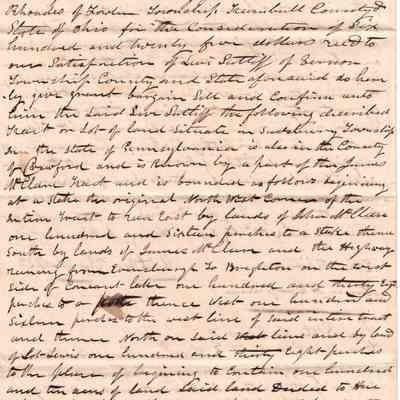 Rhoades of Township Trumbull County &
State of Ohio for the Consideration of Six
hundred and twenty five dollars recd to
our Satisfaction of Levi Sutliff of Vernon
Township County and State aforesaid do here
by give grant bargain Sell and Confirm unto
him the Said Levi Sutliff the following described
Tract or Lot of land Situate in Sadsbury Township
in the State of Pennsylvania is also in the County
of Crawford and is Known by a part of the James
McClane Tract and is bounded as follows begining
at a Stake the original North West Corner of the
intire Tract to run East by lands of John McClane
one hundred and Sixteen perches to a Stake thence
South by lands of James McClane and the Highway
running from to on the west
Side of Lake one hundred and thirty Eight
perches to a thence West one hundred and
Sixteen perches to the west line of Said intire tract
and thence North on Said line and by land
of Lewis one hundred and thirty Eight perches
to the place of begining to Contain one hundred
and ten acres of land Said land Deeded to